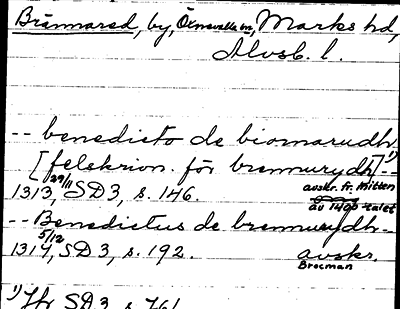 Brännared, by, Örnevalla sn, Marks hd,
Älvsb. l.
-- benedicto de biornarudh 1)
[felskrivn. för brennurydh] --
1313 29/11, SD 3, s. 146. avskr. fr. mitten
av 1400-talet
-- Benedictus de brennurydh --
1314 5/12, SD 3, s. 192. avskr.
Brocman
1) Jfr SD 3 s. 761